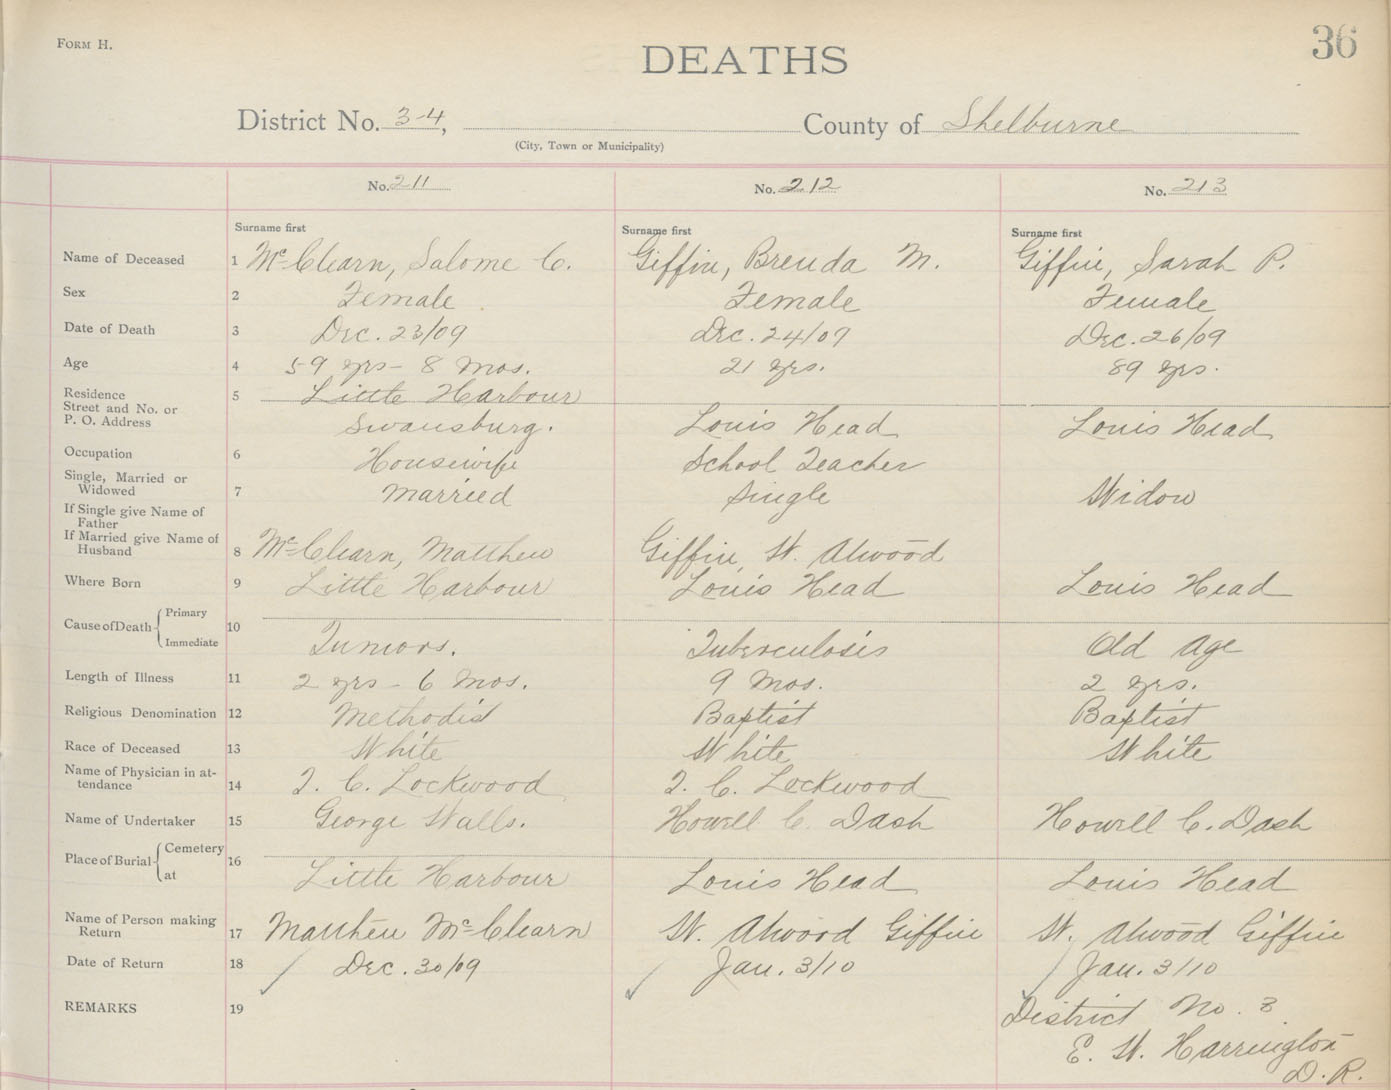 FORM H.
36
DEATHS
District No. 3-4, County of Shelburne
(City, Town or Municipality)
No. 211 No. 212 No. 213
Surname first Surname first Surname first
Name of Deceased 1 McClearn, Salome C. Giffin, Brenda M. Giffin, Sarah P.
Sex 2 Female Female Female
Date of Death 3 Dec. 23/09 Dec. 24/09 Dec. 26/09
Age 4 59 yrs - 8 mos. 21 yrs. 89 yrs.
Residence 5 Little Harbour
Street and No. or
P. O. Address Swansburg. Louis Head Louis Head
Occupation 6 Housewife School Teacher
Single, Married or
Widowed 7 Married Single Widow
If Single give Name of
Father
If Married give Name of
Husband 8 McClearn, Matthew Giffin, W. Atwood
Where Born 9 Little Harbour Louis Head Louis Head
Cause of Death Primary 10
Immediate Tumors. Tuberculosis Old Age
Length of Illness 11 2 yrs - 6 mos. 9 mos. 2 yrs.
Religious Denomination 12 Methodist Baptist Baptist
Race of Deceased 13 White White White
Name of Physician in at-
tendance 14 T. C. Lockwood T. C. Lockwood
Name of Undertaker 15 George Walls. Howell C. Dash Howell C. Dash
Place of Burial Cemetery 16
at Little Harbour Louis Head Louis Head
Name of Person making
Return 17 Matthew McClearn W. Atwood Giffin W. Atwood Giffin
Date of Return 18 Dec. 30/09 Jan. 3/10 Jan. 3/10
REMARKS 19 District No. 3
E. W. Harrington
D. R.